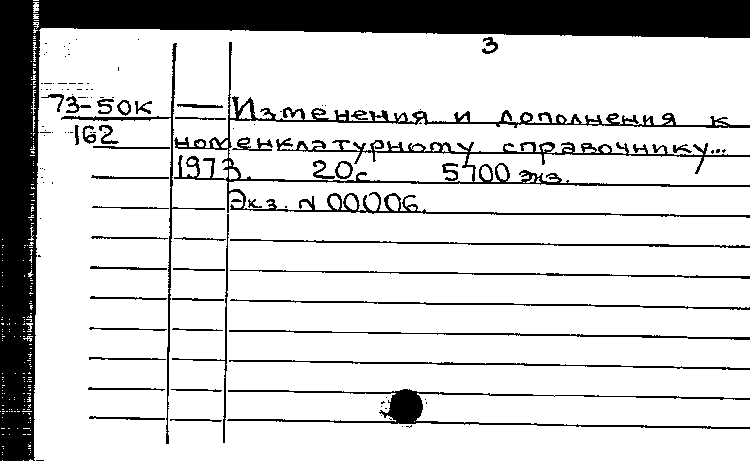 3
73-50к — Изменения и дополнения к
162 номенклатурному справочнику...
1973. 20с. 5700 экз.
Экз. № 00006.